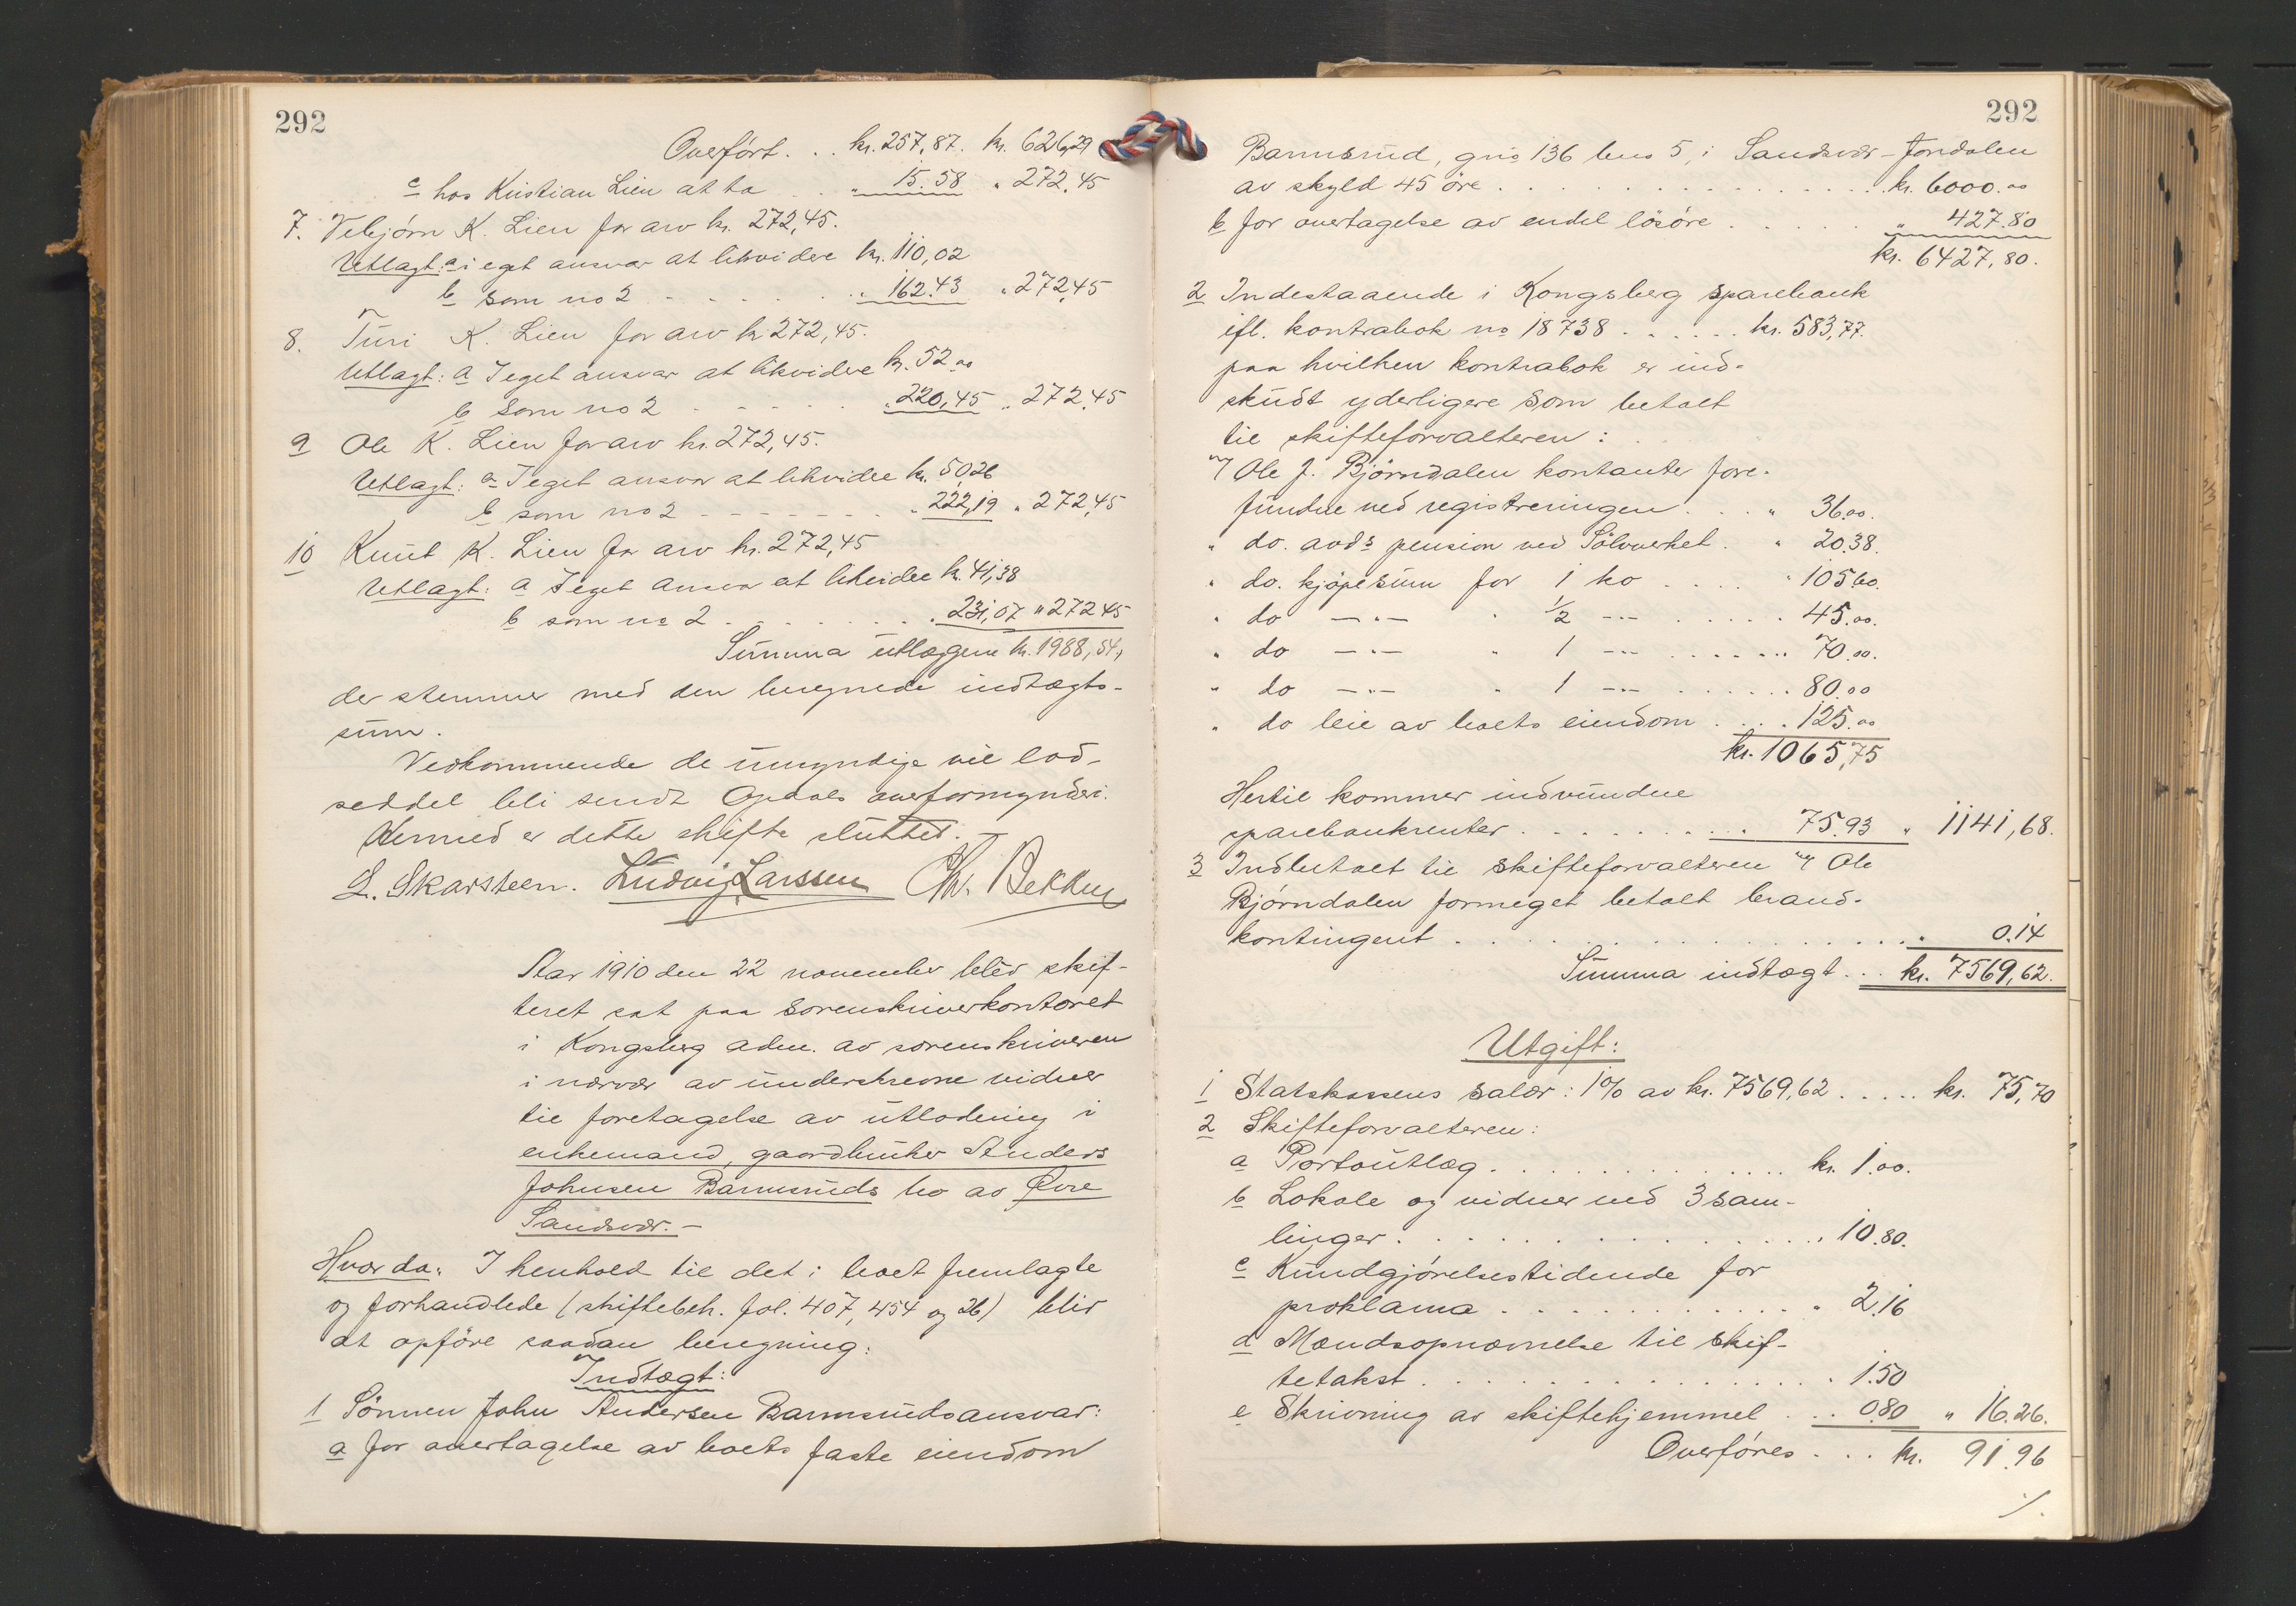 292
Overført. . . kr. 257,87. kr. 626,29
c hos Kristian Lien at ta . . " 15.58 " 272,45
7. Vebjørn K. Lien for arv kr. 272,45.
Utlagt: a i eget ansvar at likvidere kr. 110,02
b som no 2 . . . . . " 162.43 " 272,45
8. Turi K. Lien for arv kr 272,45.
Utlagt: a I eget ansvar at likvidere kr. 52.00
b som no 2 . . . . . " 220,45 " 272,45
9 Ole K. Lien for arv kr. 272,45.
Utlagt: a I eget ansvar at likvidere kr. 50,26
b som no 2 . . . . . . . " 222,19 " 272,45
10 Knut K. Lien for arv kr. 272,45
Utlagt: a I eget ansvar at likvidere kr. 41,38
b som no 2 . . . . . . . 231,07 " 272 45
Summa utlæggene kr. 1988,54,
der stemmer med den beregnede indtægts-
sum.
Vedkommende de umyndige vil lod-
seddel bli sendt Opdals overformynderi.
Hermed er dette skifte sluttet.
L. Skarsteen. Ludvig Larssen Chr. Bekker
Aar 1910 den 22 november blev skif-
teret sat paa sorenskriverkontoret
i Kongsberg adm. av sorenskriveren
i nærvær av underskrevne vidner
til foretagelse av utlodning i
enkemand, gaardbruker Anders
Johnsen Barmruds bo av Øvre
Sandsvær.-
Hvorda: I henhold til det i boet fremlagte
og forhandlede (skiftebeh. fol. 407, 454 og 26) blir
at opføre saadan beregning:
Indtægt:
1 Sønnen John Andersen Barmruds ansvar:
a for overtagelse av boets faste eiendom
292
Barmrud, gno 136 bno 5, i Sandsvær-Jondalen
av skyld 45 øre . . . . . . . . . . . . kr. 6000.00
b for overtagelse av endel løsøre . . . . . " 427.80
kr. 6427,80.
2 Indestaaende i Kongsberg sparebank
ifl. kontrabok no 18738 . . . . . . kr. 583,77.
paa hvilken kontrabok er ind-
skudt yderligere som betalt
til skifteforvalteren:
av Ole J. Bjørndalen kontanter fore-
fundne ved registreringen . . . " 36.00.
" do. avds pension ved Sølvverket . " 20.38.
" do. kjøpesum for 1 ko . . . . " 105.60.
" do —"— " 1/2 —"— . . . . . 45.00.
" do —"— " 1 —"— . . . . . . 70.00.
" do —"— " 1 —"— . . . . . . 80.00
" do leie av boets eiendom . . . . 125.00
kr. 1065,75
Hertil kommer indvundne
sparebankrenter . . . . . . . . . . 75.93 " 1141,68.
3 Indbetalt til skifteforvalteren av Ole
Bjørndalen formeget betalt brand-
kontingent . . . . . . . . . . . . . . . 0.14
Summa indtægt . . . kr. 7569,62.
Utgift:
1 Statskassens salær: 1% av kr. 7569,62 . . . . . kr. 75,70
2 Skifteforvalteren:
a Portoutlæg . . . . . . . . . . . . kr. 1.00.
b Lokale og vidner ved 3 sam-
linger . . . . . . . . . . . . . . . " 10.80.
c Kundgjørelsestidende for
proklama . . . . . . . . . . . . " 2.16
d Mændsopnævnelse til skif-
tetakst . . . . . . . . . . . . . . . 1.50
e Skrivning av skiftehjemmel . . . 0.80 " 16.26.
Overføres . . . kr. 91.96
./.